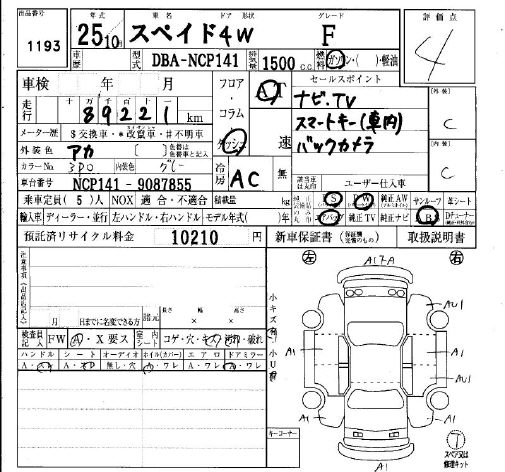 出品番号
1193
年式 車名 ドア 形状 グレード
25 10 スペイド 4W F
評価点
4
車歴 型式 DBA-NCP141 排気量 1500 cc 燃料 ガソリン・( )・軽油
車検 年 月
フロア・コラム
AT
セールスポイント
ナビ.TV
スマートキー(車内)
バックカメラ
内装 C
外装 C
走行 十万 万 千 百 十 一
89221 km
メーター歴 $交換車・*改ざん車・#不明車
外装色 アカ ( )
カラーNo. 3P0 内装色 グレー
車台番号 NCP141 - 9087855
冷房 AC
速
無
ユーザー仕入車
乗車定員 (5)人 NOX 適合・不適合 積載量 kg
PS PW 純正AW サンルーフ 革シート
輸入車 ディーラー・並行 左ハンドル・右ハンドル モデル年式( )年
エアバッグ 純正TV 純正ナビ
預託済リサイクル料金 10210 円
新車保証書 (保証継完備のもの) 取扱説明書
注意事項(出品店記入)
月 日までに名変できる方
諸元 長さ × 幅 × 高さ
検査員記入 FW A・X要ス 室内 シート コゲ・穴・キズ・汚れ・破れ
ハンドル シート オーディオ ホイル(カバー) エアロ ドアミラー
無し・穴
ワレ
ワレ
ワレ
左 右
A1 ア A
AU1
A1 A1
AU1
A1 A1
A1
キーコーナー
スペアタイヤ又は修理キット